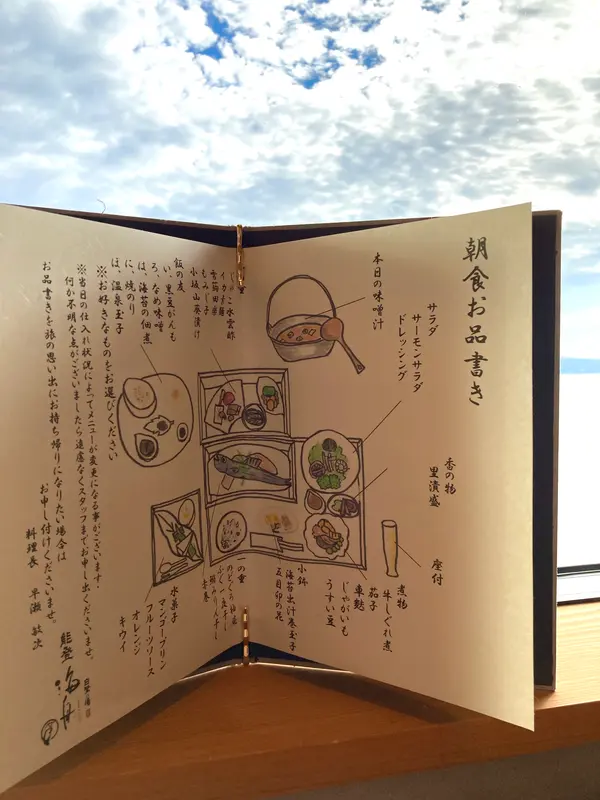 朝食お品書き
座付
香の物
里漬盛
サラダ
サーモンサラダ
ドレッシング
本日の味噌汁
煮物
牛しぐれ煮
茄子
車麩
じゃがいも
うすい豆
小鉢
海苔出汁巻玉子
五目卯の花
一の重
水菓子
マンゴープリン
フルーツソース
オレンジ
キウイ
じゃこ水雲酢
もみじ子
小坂山葵漬け
飯の友
い、黒豆がんも
ろ、なめ味噌
は、海苔の佃煮
に、焼のり
ほ、温泉玉子
※お好きなものをお選びください
※当日の仕入れ状況によってメニューが変更になる事がございます。
何か不明な点がございましたら遠慮なくスタッフまでお申し出くださいませ。
お品書きを旅の思い出にお持ち帰りになりたい場合は
お申し付けくださいませ。
料理長 平瀬 敏次
能登